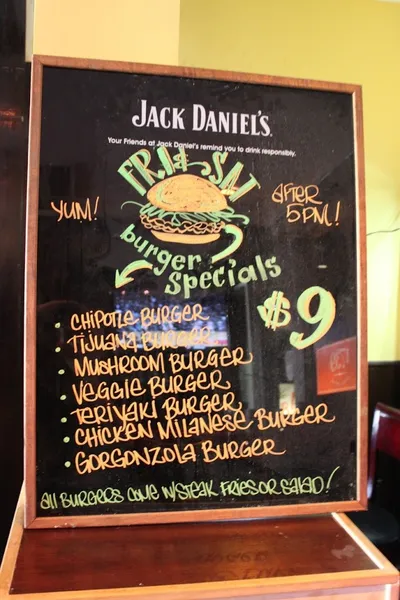 JACK DANIEL'S
Your Friends at Jack Daniel's remind you to drink responsibly.
FRI & SAT
YUM!
AFTER
5PM!
burger
specials
$9
• CHIPOTLE BURGER
• TIJUANA BURGER
• MUSHROOM BURGER
• VEGGIE BURGER
• TERIYAKI BURGER
• CHICKEN MILANESE BURGER
• GORGONZOLA BURGER
All BURGERS COME W/STEAK FRIES OR SALAD!